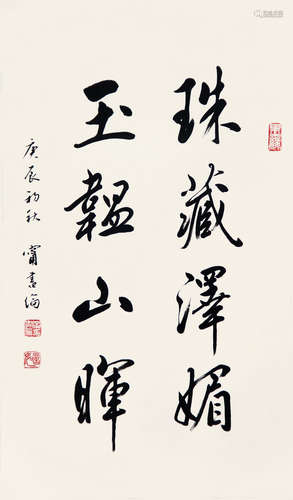 珠藏澤媚
玉韞山暉
庚辰初秋 甯書綸